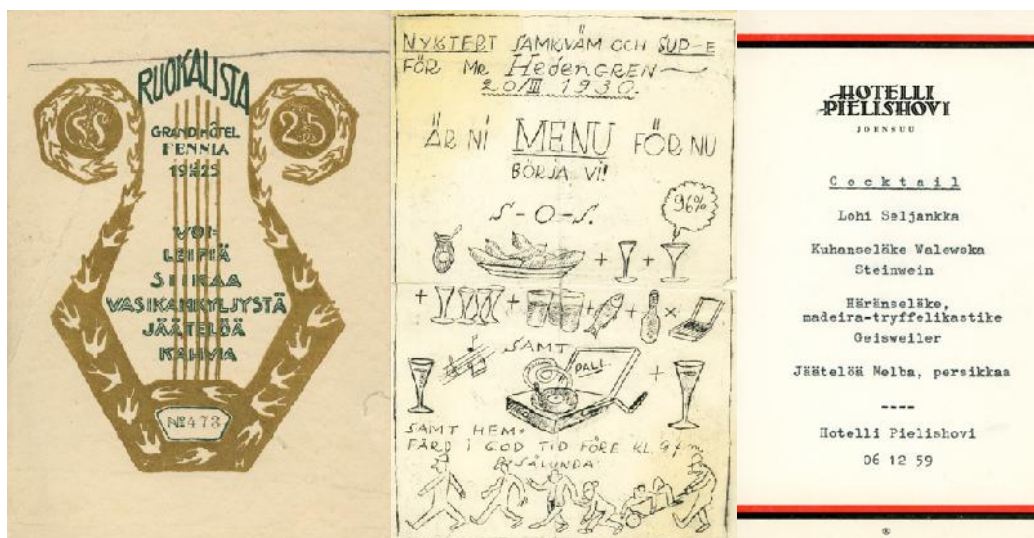 RUOKALISTA
SS
25
GRAND HÔTEL
FENNIA
1925
VOI-
LEIPIÄ
SIIKAA
VASIKANKYLJYSTÄ
JÄÄTELÖÄ
KAHVIA
No 473
H
NYKTERT SAMKVÄM OCH SUP-E
FÖR Mr Hedengren
20/III 1930.
ÄR NI MENU FÖR NU
BÖRJA VI!
S-O-S.
96%
+ +
+ + + + ×
SAMT
PALL
+
SAMT HEM-
FÄRD I GOD TID FÖRE KL. 9 f.m.
SÅLUNDA:
HOTELLI
PIELISHOVI
JOENSUU
Cocktail
Lohi Seljankka
Kuhanseläke Walewska
Steinwein
Häränseläke,
madeira-tryffelikastike
Geisweiler
Jäätelöä Melba, persikkaa
----
Hotelli Pielishovi
06 12 59